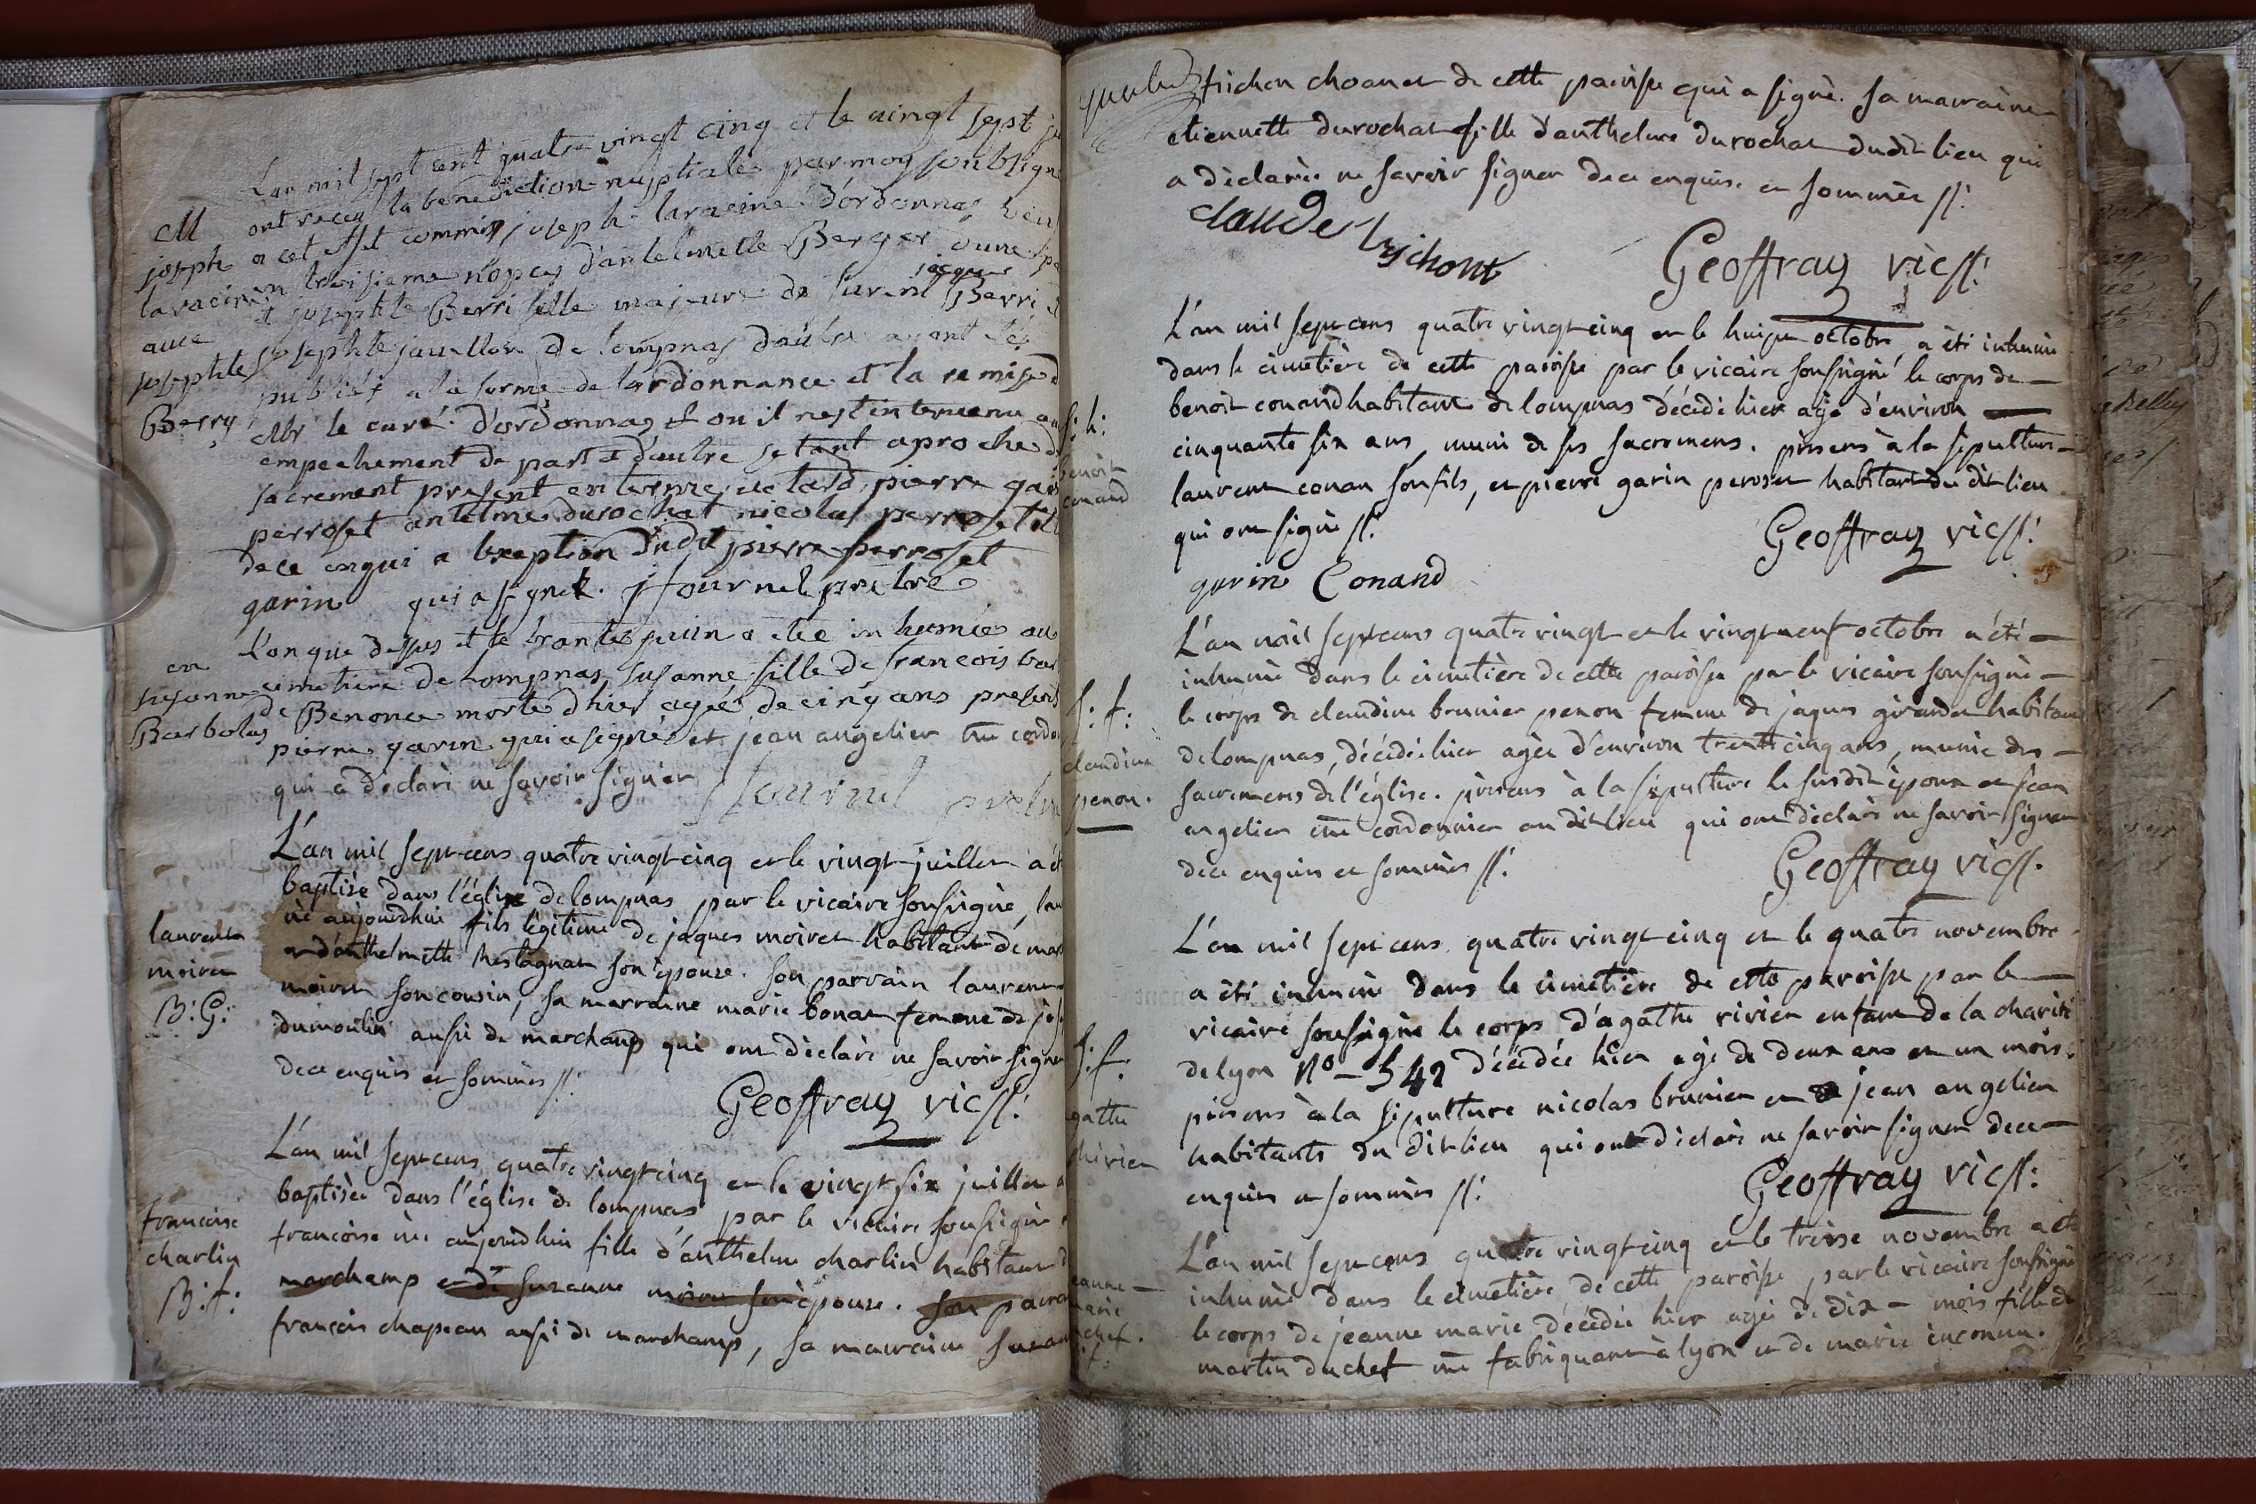 L'an mil sept cent quatre vingt cinq et le vingt sept
M ont receu la benediction nuptiale par moy soubsigne
joseph a cet effet commis joseph laracine d'ordonnas
laracine en troisieme nopces d'antelmette Berger d'une
jacque
avec et josephte Berri fille majeure de Berri
josephte josephte juillon de lompnas d'autre ayant
publiés a la forme de l'ordonnance et la remise
Berry Mr le curé d'ordonnas et ou il nest intervenu
empechement de part et d'autre setant aproche
sacrement present pierre
perroset antelme durochat nicolas perroset
de ce enqui a lexeption dudit pierre perroset
garin qui a signet. fournel pretre
en L'an que dessus et le trante juin a étée inhumée au
susanne cimetiere de lompnas susanne fille de francois
Barbolas de Benonce morte d'hier agée de cinq ans
pierre garin qui a signé et jean angelier me
qui a déclaré ne savoir signer fournel
L'an mil sept cens quatre vingt cinq et le vingt juillet a
baptisé dans l'église de lompnas par le vicaire soussigné,
laurent né aujourdhui fils légitime de jaques moiret habitant de
moiret et d'anthelmette hestagnat son épouse. son parrain laurent
B: G: moiret son cousin, sa marraine marie bonat femme de
dumoulin aussi de marchamp qui ont déclaré ne savoir signer
de ce enquis et sommés //:
Geoffray vic //:
L'an mil sept cens quatre vingt cinq et le vingt six juillet
baptisée dans l'église de lompnas par le vicaire soussigné
francoise francoise née aujourdhui fille d'anthelme charlin habitant
charlin marchamp et de suzanne moiret son épouse. son
B: f: francois chapeau aussi de marchamp, sa marraine
trichon choanet de cette paroisse qui a signé. sa marraine
etiennette durochat fille d'anthelme durochat dudit lieu qui
a déclarée ne savoir signer de ce enquise et sommée //:
claude
Geoffray vic //:
L'an mil sept cens quatre vingt cinq et le huit octobre a été inhumé
dans le cimetière de cette paroisse par le vicaire soussigné le corps de
benoit conand habitant de lompnas décédé hier agé d'environ
cinquante six ans, muni de ses sacremens. présens à la sépulture
benoit
conand
laurent conan son fils, et pierre garin peroset habitant du dit lieu
qui ont signé //:
Geoffray vic //:
garin Conand
L'an mil sept cens quatre vingt et le vingt neuf octobre a été
inhumé dans le cimetière de cette paroisse par le vicaire soussigné
S: f: le corps de claudine brunier penon femme de jaques girardet habitant
claudine de lompnas, décédée hier agée d'environ trente cinq ans, munie des
penon. sacremens de l'église. présens à la sépulture le susdit époux et jean
angelier me cordonnier au dit lieu qui ont déclaré ne savoir signer
de ce enquis et sommés //:
Geoffray vic //.
L'an mil sept cens quatre vingt cinq et le quatre novembre
a été inhumé dans le cimetière de cette paroisse par le
vicaire soussigné le corps d'agathe rivier enfant de la charité
S: f: de lyon No 542 décédée hier agé de deux ans et un mois.
présens à la sépulture nicolas brunier et jean angelier
habitants du dit lieu qui ont déclaré ne savoir signer de ce
enquis et sommés //:
Geoffray vic //:
L'an mil sept cens quatre vingt cinq et le treise novembre a été
inhumé dans le cimetière de cette paroisse par le vicaire soussigné
le corps de jeanne marie décédée hier agée de dix mois fille de
martin duchef me fabriquant à lyon et de marie inconnu.